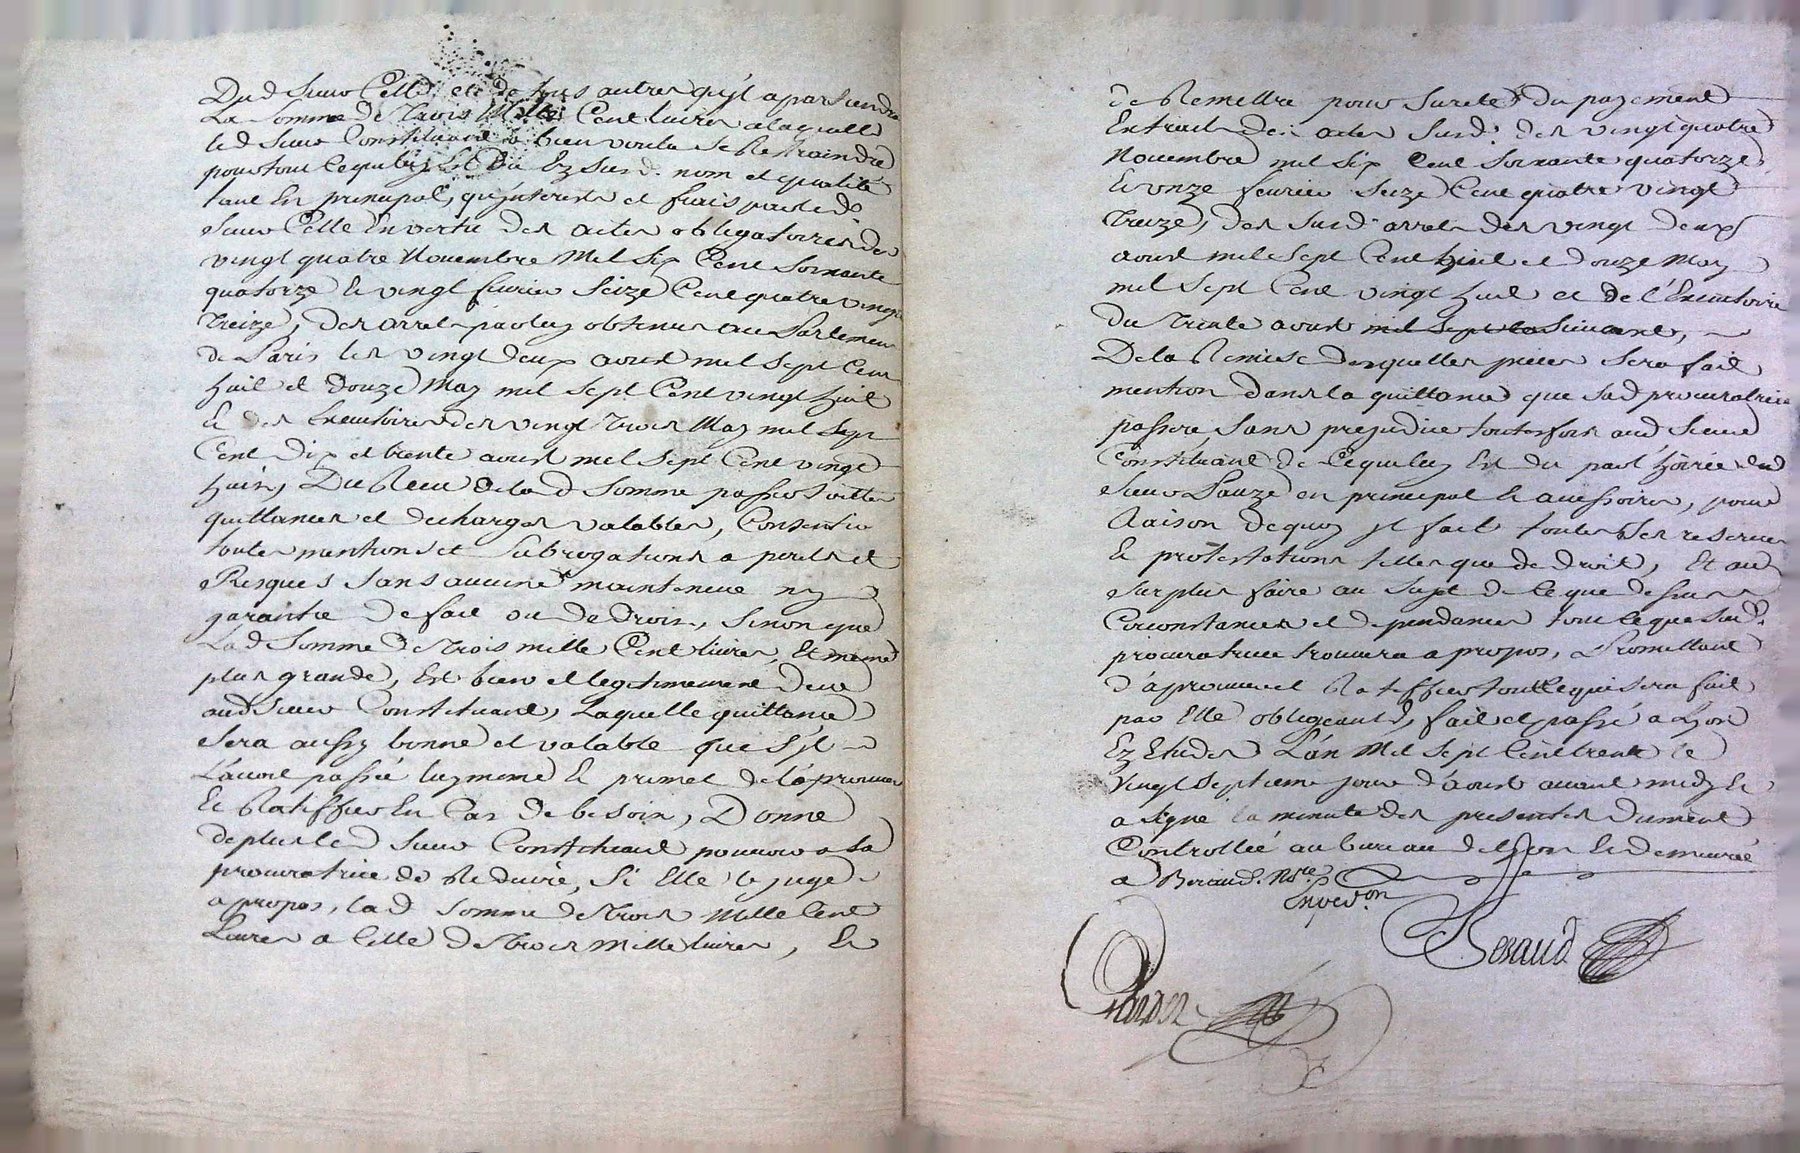 Dud Sieur Celle et de tous autres qu'jl apartiendra
La Somme de Trois Mille Cent livres a laquelle
led Sieur Constituant a bien voulu se Restraindre
pour tout ce qui luy Est dû Ez susd. nom et qualité
tant En principal, qu'jnterests et frais par led
Sieur Celle En vertu des actes obligatoires des
vingt quatre Novembre Mil Six Cent Soixante
quatorze & vingt fevrier Seize Cent quatre vingt
Treize, des arrets par luy obtenus au Parlement
de Paris les vingt deux aoust mil sept Cent
huit et douze May mil sept Cent vingt huit
Et des Executoires des vingt Trois May mil Sept
Cent Dix et trente aoust mil sept Cent vingt
huit, Du Receu de lad Somme passer toutes
quittances et decharges valables, Consentir
toutes mentions et subrogations a perils et
Risques sans aucune maintenue ny
garantie de fait ou de Droit, Sinon que
Lad Somme de trois mille Cent livres, Et meme
plus grande, Est bien et legitimement deue
aud Sieur Constituant, Laquelle quittance
Sera aussy bonne et valable que S'jl
L'auoit passée luy meme & promet de l'aprouver
Et Ratiffier En Cas de besoin, Donne
de plus led Sieur Constituant pouvoir a sa
procuratrice de Reduire, Si Elle le juge
a propos, lad Somme de Trois Mille Cent
Livres a Celle de Trois mille livres, Et
de Remettre pour Sureté du payement
Extraits des actes Susd. des vingt quatre
Novembre mil six Cent Soixante quatorze
& onze fevrier Seize Cent quatre vingt
Treize, des Susd. arrets des vingt deux
aoust mil sept Cent huit et douze May
mil sept Cent vingt huit et de l'Executoire
du Trente aoust mil sept Suivant,
De la Remise desquelles pieces sera fait
mention dans la quittance que sad procuratrice
passera Sans prejudice toutefois aud Sieur
Constituant de Ce qui luy Est du par l'hoirie dud
Sieur Lauze en principal & accessoires, pour
Raison de quoy jl fait toutes Ses reserves
& protestations telles que de Droit, Et au
Surplus faire au Sujet de Ce que dessus
Circonstances et dependances tout Ce que Sad.
procuratrice trouvera a propos, Promettant
d'aprouver et Ratiffier tout Ce qui sera fait
par Elle obligeant &, fait et passé a Lyon
Ez Etudes L'an Mil Sept Cent trente le
Vingt Septieme jour d'aoust auant midy &
a Signé la minute des presentes dument
Controllée au bureau de Lyon & demeurée
a Beraud. Nore
Expedon
Beraud